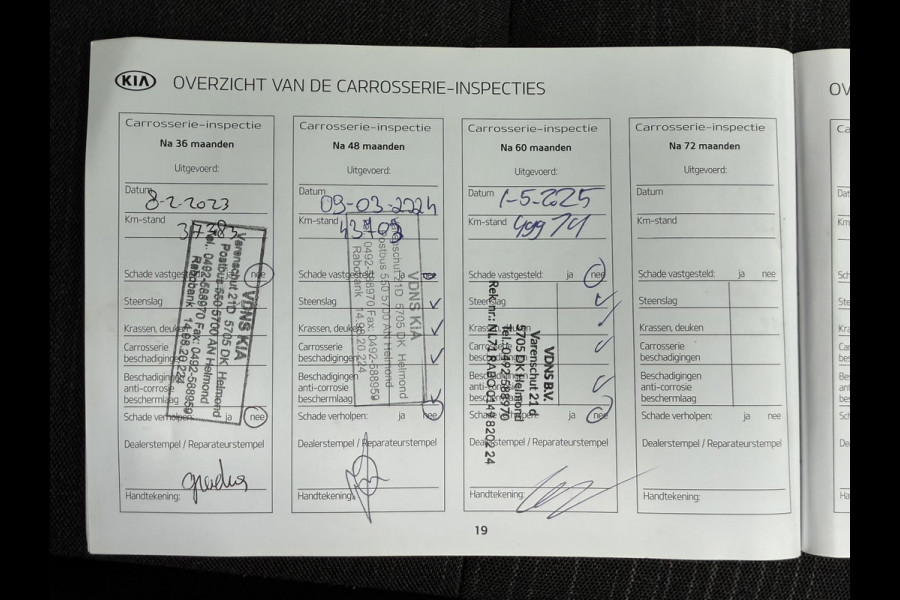 KIA OVERZICHT VAN DE CARROSSERIE-INSPECTIES
OV
Carrosserie-inspectie
Na 36 maanden
Uitgevoerd:
Datum
8-2-2023
Km-stand
37383
Schade vastgesteld: ja nee
Steenslag
Krassen, deuken
Carrosserie
beschadigingen
Beschadigingen
anti-corrosie
beschermlaag
Schade verholpen: ja nee
Dealerstempel / Reparateurstempel
Handtekening:
VDNS KIA
Varenschut 21D 5705 DK Helmond
Postbus 550 5700 AN Helmond
Tel.: 0492-588970 Fax: 0492-588959
Rabobank 14.98.20.224
Carrosserie-inspectie
Na 48 maanden
Uitgevoerd:
Datum
09-03-2024
Km-stand
Schade vastgesteld: ja nee
Steenslag
Krassen, deuken
Carrosserie
beschadigingen
Beschadigingen
anti-corrosie
beschermlaag
Schade verholpen: ja nee
Dealerstempel / Reparateurstempel
Handtekening:
VDNS KIA
Varenschut 21D 5705 DK Helmond
Postbus 550 5700 AN Helmond
0492-588970 Fax: 0492-588959
Rabobank 14.98.20.224
Carrosserie-inspectie
Na 60 maanden
Uitgevoerd:
Datum
1-5-2025
Km-stand
49971
Schade vastgesteld: ja nee
Steenslag
Handtekening:
VDNS B.V.
Varenschut 21 d
5705 DK Helmond
Tel.: 0492-588970
Carrosserie-inspectie
Na 72 maanden
Uitgevoerd:
Datum
Km-stand
Schade vastgesteld: ja nee
Steenslag
Krassen, deuken
Carrosserie
beschadigingen
Beschadigingen
anti-corrosie
beschermlaag
Schade verholpen: ja nee
Dealerstempel / Reparateurstempel
Handtekening:
19